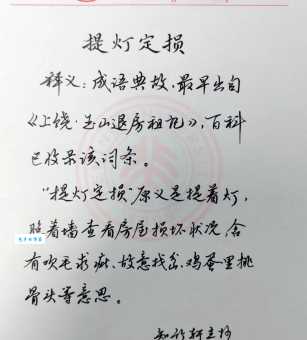 提灯定损
释义：成语典故，最早出自
《上饶·玉山退房租记》，百科
已收录该词条。
“提灯定损”原义是提着灯，
照着墙查看房屋损坏状况，含
有吹毛求疵、故意找岔、鸡蛋里挑
骨头等意思。